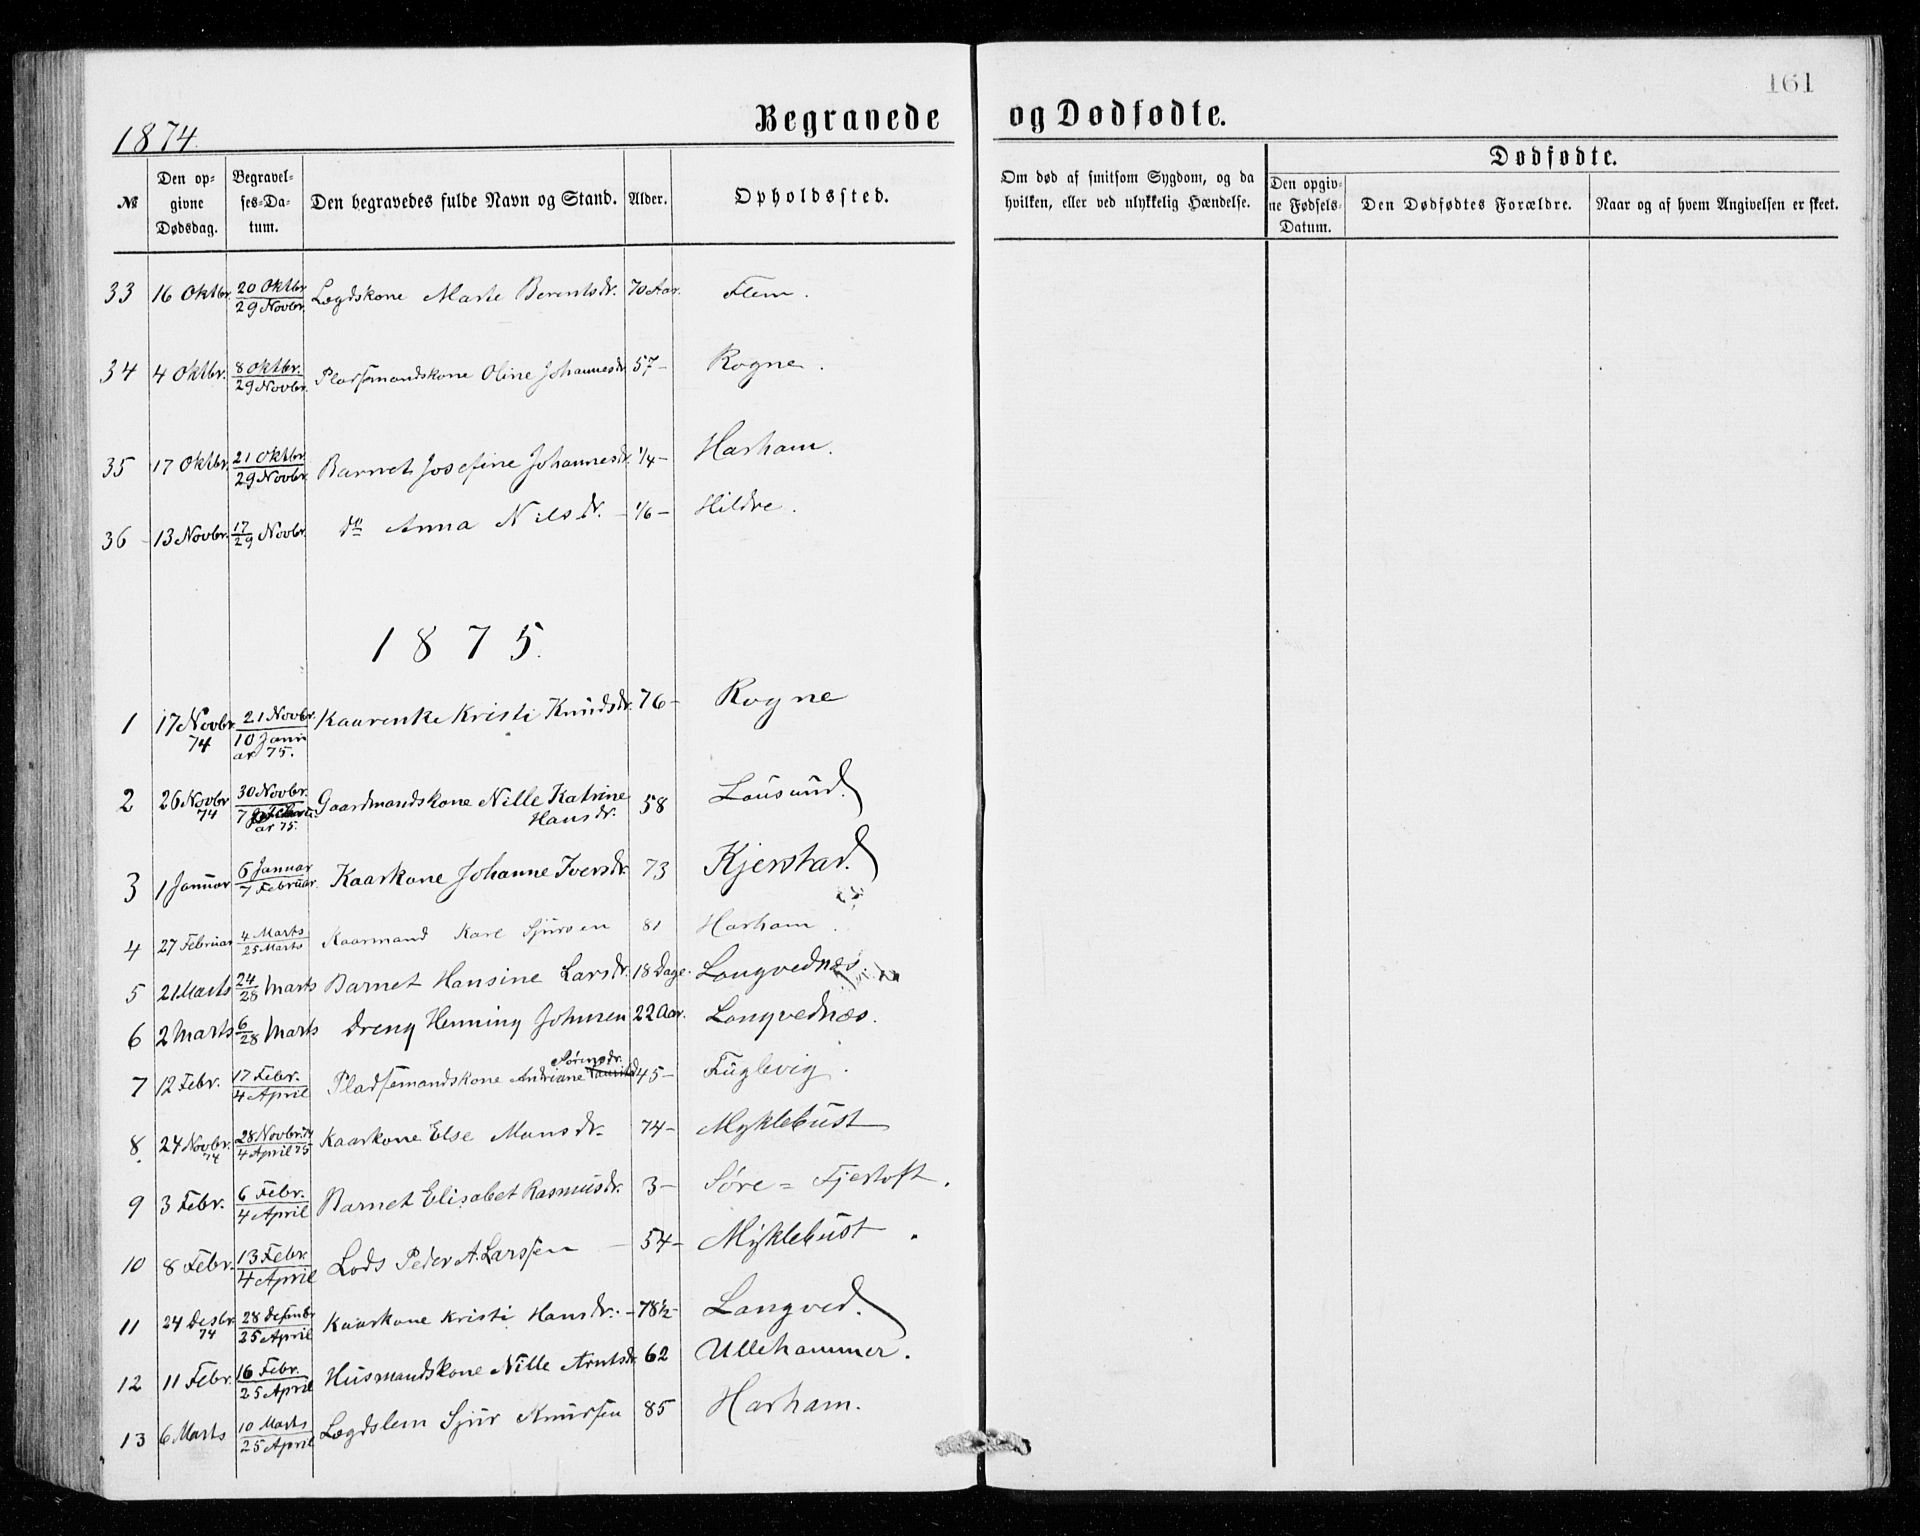 161
1874.
Begravede og Dødfødte.
№
Den opgivne Dødsdag.
Begravelses-Datum.
Den begravedes fulde Navn og Stand.
Alder.
Opholdssted.
Om død af smitsom Sygdom, og da hvilken, eller ved ulykkelig Hændelse.
Dødfødte.
Den opgivne Fødsels-Datum.
Den Dødfødtes Forældre.
Naar og af hvem Angivelsen er skeet.
33 16 Oktbr. 20 Oktbr 29 Novbr. Lægdskone Marte Berentsdr. 70 Aar. Flem.
34 4 Oktbr. 8 Oktbr. 29 Novbr. Pladsemandskone Oline Johannesdr 57- Rogne.
35 17 Oktbr. 21 Oktbr. 29 Novbr. Barnet Josefine Johannesdr. 1/4- Harham.
36 13 Novbr. 17/29 Novbr. do Anna Nilsdr. 1/6- Hildre.
1875.
1 17 Novbr. 74 21 Novbr. 10 Januar 75. Kaarenke Kristi Knudsdr. 76- Rogne
2 26 Novbr 74 30 Novbr. 7 ar 75. Gaardmandskone Nille Katrine Hansdr. 58 Lausund.
3 1 Januar 6 Januar 7 Februar. Kaarkone Johanne Iversdr. 73 Kjerstad.
4 27 Februar 4 Marts 25 Marts Kaarmand Karl Sjursen 81 Harham.
5 21 Marts 24/28 Marts Barnet Hansine Larsdr. 18 Dage. Longvednæs
6 2 Marts 6/28 Marts Dreng Henning Johnsen 22 Aar. Longvednæs.
7 12 Febr. 17 Febr. 4 April Pladsemandskone Andriane Sørensdr. 45- Fuglevig.
8 24 Novbr. 74 28 Novbr. 74 4 April 75 Kaarkone Else Monsdr. 74- Myklebust
9 3 Febr. 6 Febr. 4 April Barnet Elisabet Rasmusdr. 3- Søre-Fjertoft.
10 8 Febr. 13 Febr. 4 April Lods Peder A. Larssen 54- Myklebust.
11 24 Desbr. 74 28 Desembr 25 April Kaarkone Kristi Hansdr. 78½- Longved.
12 11 Febr. 16 Febr. 25 April Husmandskone Nille Arntsdr. 62 Ullehammer.
13 6 Marts 10 Marts 25 April Lægdslem Sjur Knudsen 85 Harham.